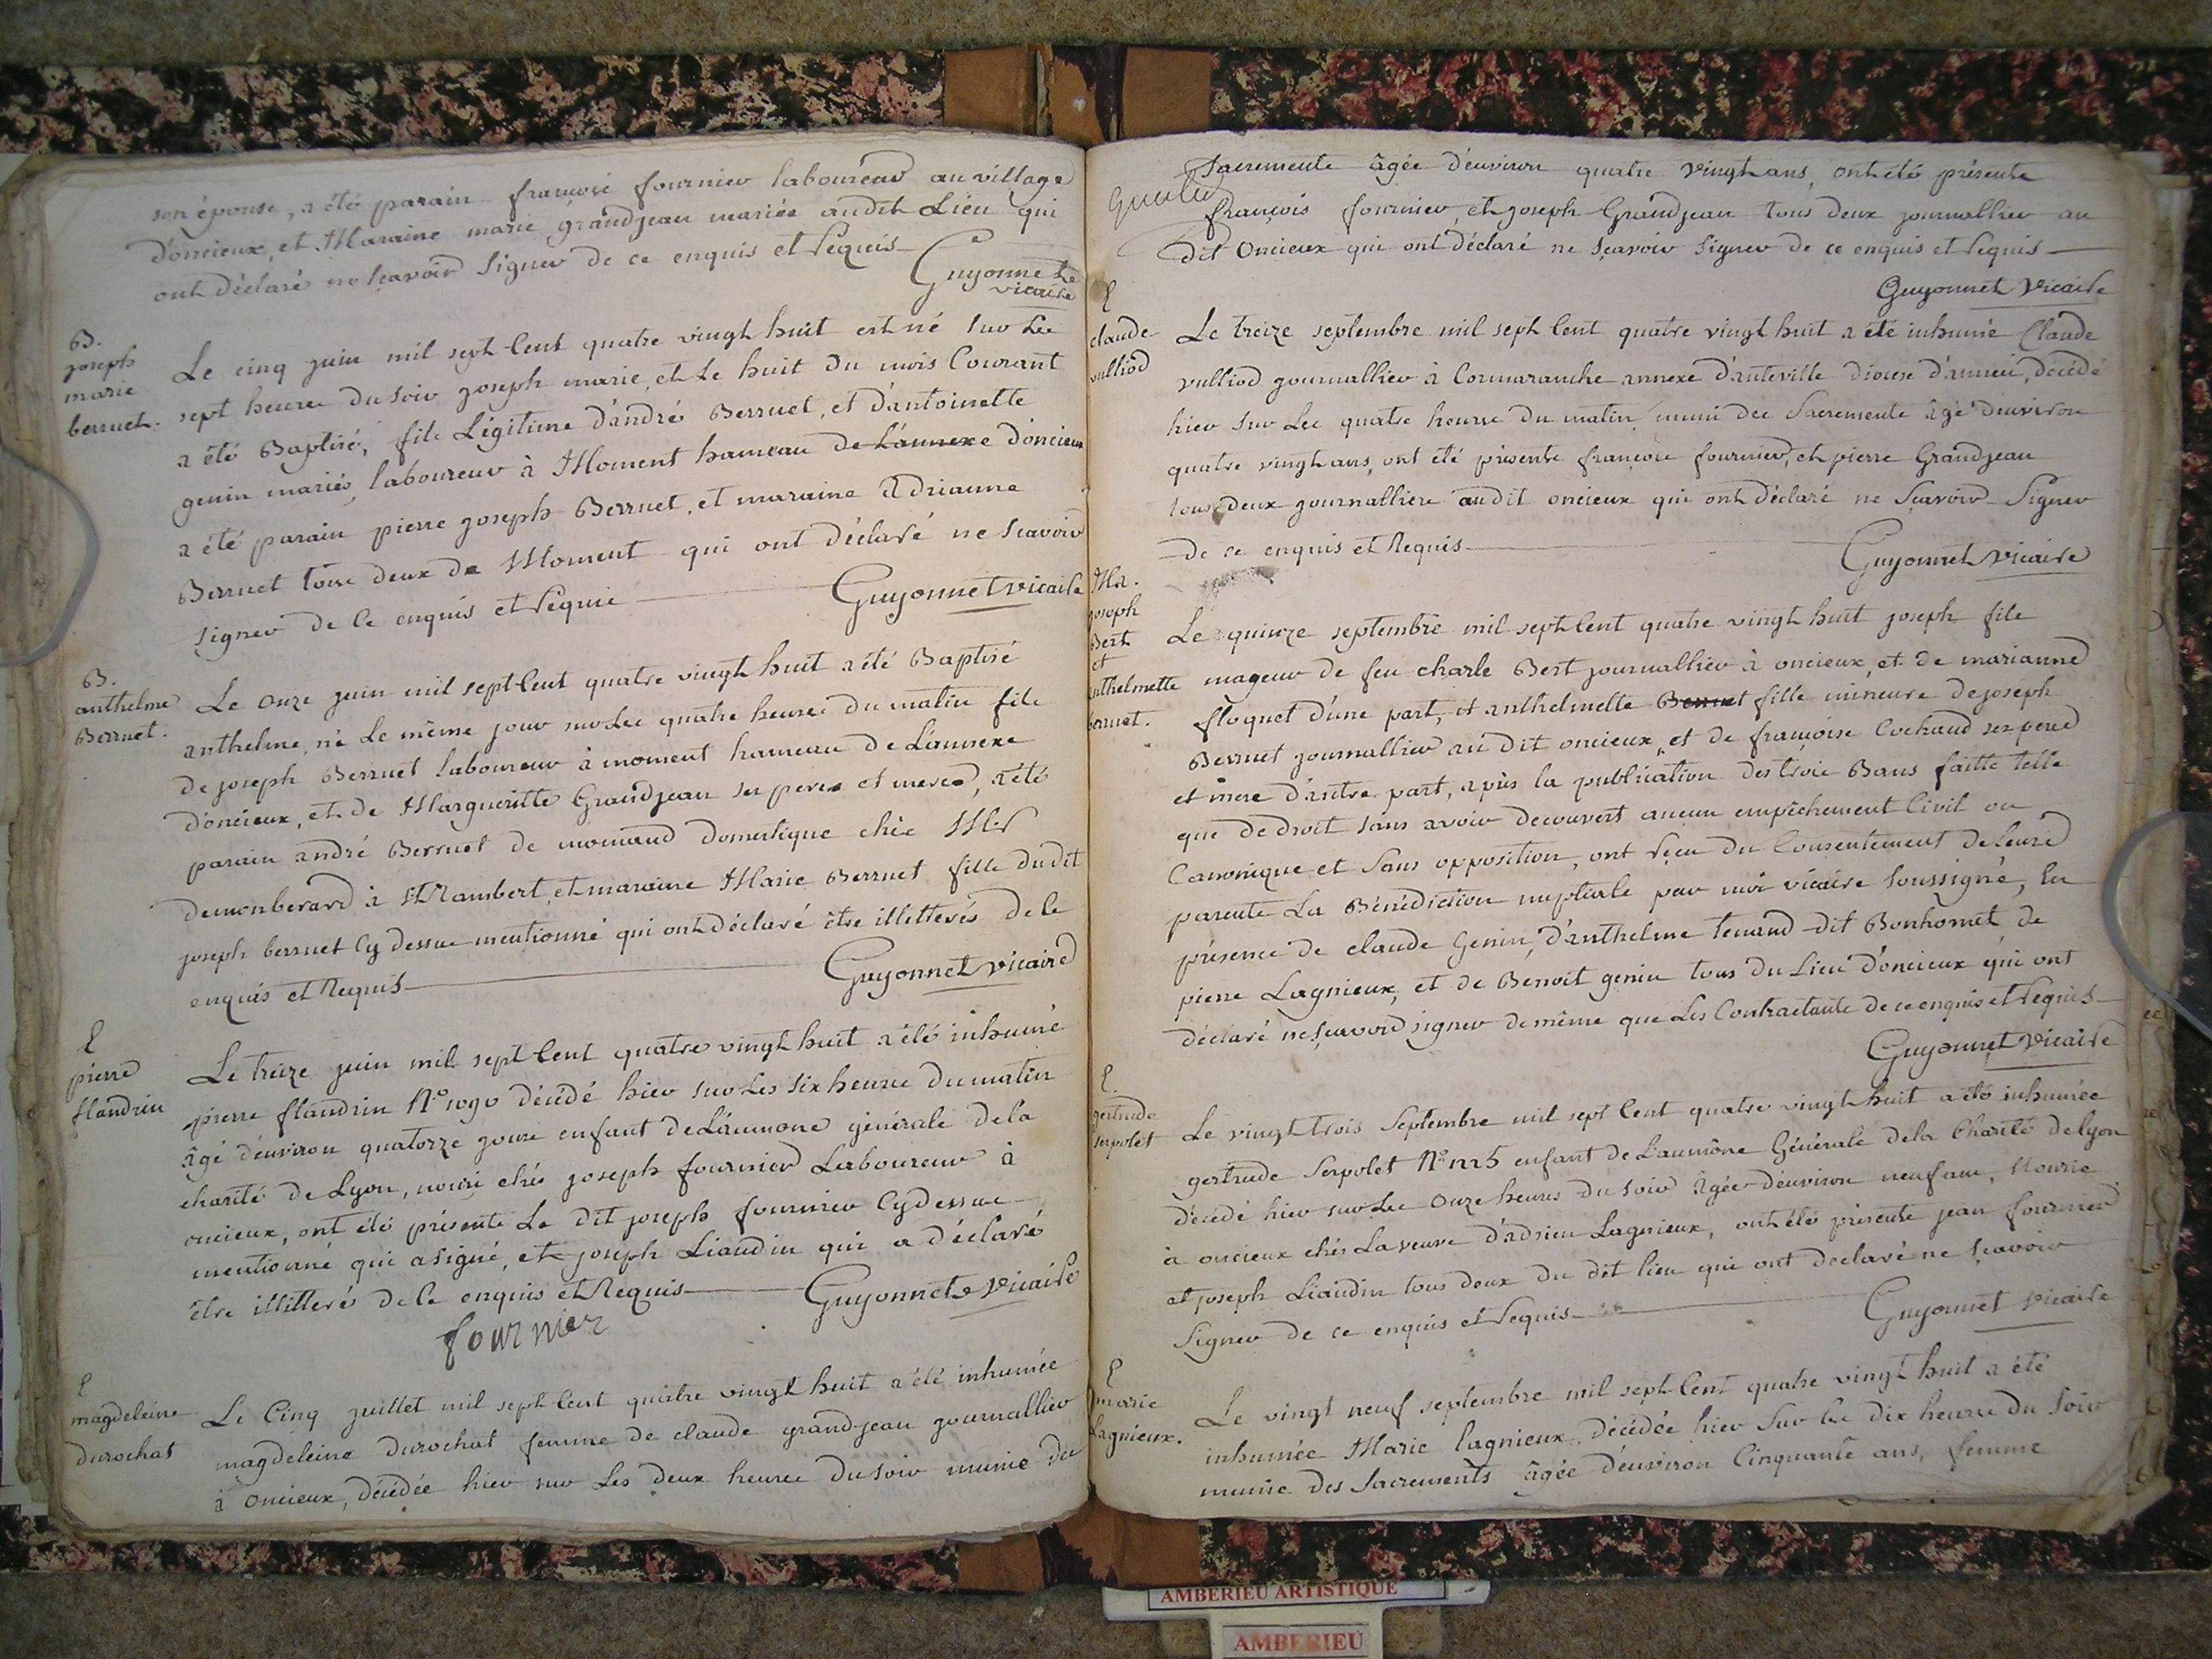 son épouse, a été parain françois fournier laboureur au village
d'oncieux, et Maraine marie grandjean mariée audit Lieu qui
ont déclaré ne sçavoir signer de ce enquis et requis
Guyonnet
vicaire
B.
joseph
marie
berruet.
Le cinq juin mil sept Cent quatre vingt huit est né sur Les
sept heures du soir joseph marie, et Le huit du mois Courant
a été Baptisé, fils Légitime d'andré Berruet, et d'antoinette
genin mariés, laboureur à Moment hameau de L'annexe d'oncieux
a été parain pierre joseph Berruet, et maraine Adrianne
Berruet tous deux de Moment qui ont déclaré ne sçavoir
signer de Ce enquis et requis
Guyonnet vicaire
B.
anthelme
Berruet.
Le onze juin mil sept Cent quatre vingt huit a été Baptisé
anthelme, né Le même jour sur Les quatre heures du matin fils
de joseph Berruet laboureur à moment hameau de L'annexe
d'oncieux, et de Margueritte Grandjean ses peres et meres, a été
parain andré Berruet de momand domestique chès Mr
demonberard à St Rambert, et maraine Marie Berruet fille du dit
joseph berruet Cy dessus mentionné qui ont déclaré être illetterés de Ce
enquis et Requis
Guyonnet vicaire
E
pierre
flandrin
Le treize juin mil sept Cent quatre vingt huit a été inhumé
pierre flandrin N° 1090 décédé hier sur Les six heures du matin
âgé d'environ quatorze jours enfant de L'aumone générale de la
charité de Lyon, nouri chés joseph fournier Laboureur à
oncieux, ont été présents Le dit joseph fournier Cy dessus
mentionné qui a signé, et joseph Liaudin qui a déclaré
être illitteré de Ce enquis et Requis
Guyonnet Vicaire
fournier
E
magdeleine
durochat
Le Cinq juillet mil sept Cent quatre vingt huit a été inhumée
magdeleine durochat femme de claude grandjean journallier
à oncieux, décédée hier sur Les deux heures du soir munie des
Sacrements âgée d'environ quatre vingt ans, ont été présents
françois fournier, et joseph Grandjean tous deux journallier au
dit Oncieux qui ont déclaré ne sçavoir signer de ce enquis et requis
Guyonnet Vicaire
E
claude
vulliod
Le treize septembre mil sept Cent quatre vingt huit a été inhumé Claude
vulliod journallier à Cormaranche annexe d'auteville diocese d'anneci, décédé
hier sur Les quatre heures du matin muni des Sacrements âgé d'environ
quatre vingt ans, ont été présents françois fournier, et pierre Grandjean
tous deux journalliers audit oncieux qui ont déclaré ne Sçavoir Signer
de ce enquis et Requis
Guyonnet vicaire
Ma.
joseph
Bert
et
anthelmette
berruet.
Le quinze septembre mil sept Cent quatre vingt huit joseph fils
mageur de feu charle Bert journallier à oncieux, et de marianne
floquet d'une part, et anthelmette Berruet fille mineure de joseph
Berruet journallier au dit oncieux, et de françoise Cochaud ses peres
et mere d'autre part, après la publication des trois Bans faitte telle
que de droit sans avoir decouvert aucun empêchement Civil ou
Canonique et Sans opposition, ont reçu du Consentement de leurs
parents La Bénédiction nuptiale par moi vicaire soussigné, En
présence de claude Genin, d'anthelme tenand dit Bonhomet, de
pierre Lagnieux, et de Benoit genin tous du Lieu d'oncieux qui ont
déclaré ne sçavoir signer de même que Les Contractants de ce enquis et requis
Guyonnet Vicaire
E.
gertrude
serpolet
Le vingt trois Septembre mil sept Cent quatre vingt huit a été inhumée
gertrude Serpolet N° 1225 enfant de L'aumône Générale de la Charité de lyon
décédé hier sur Les onze heures du soir âgée d'environ neuf ans, Nourie
à oncieux chés La veuve d'adrien Lagnieux, ont été présents jean fournier
et joseph Liaudin tous deux du dit lieu qui ont declaré ne sçavoir
Signer de ce enquis et requis
Guyonnet vicaire
E
marie
Lagnieux.
Le vingt neuf septembre mil sept Cent quatre vingt huit a été
inhumée Marie lagnieux décédée hier Sur Les dix heures du Soir
munie des Sacrements âgée d'environ Cinquante ans, femme
AMBERIEU ARTISTIQUE
AMBERIEU